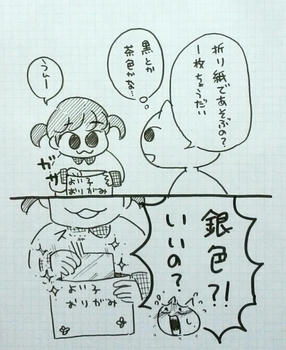 折り紙であそぶの?
一枚ちょうだい
黒とか
茶色かな…
うんー
ガサ
よい子
おりがみ
銀色?!
いいの?
よい子
おりがみ